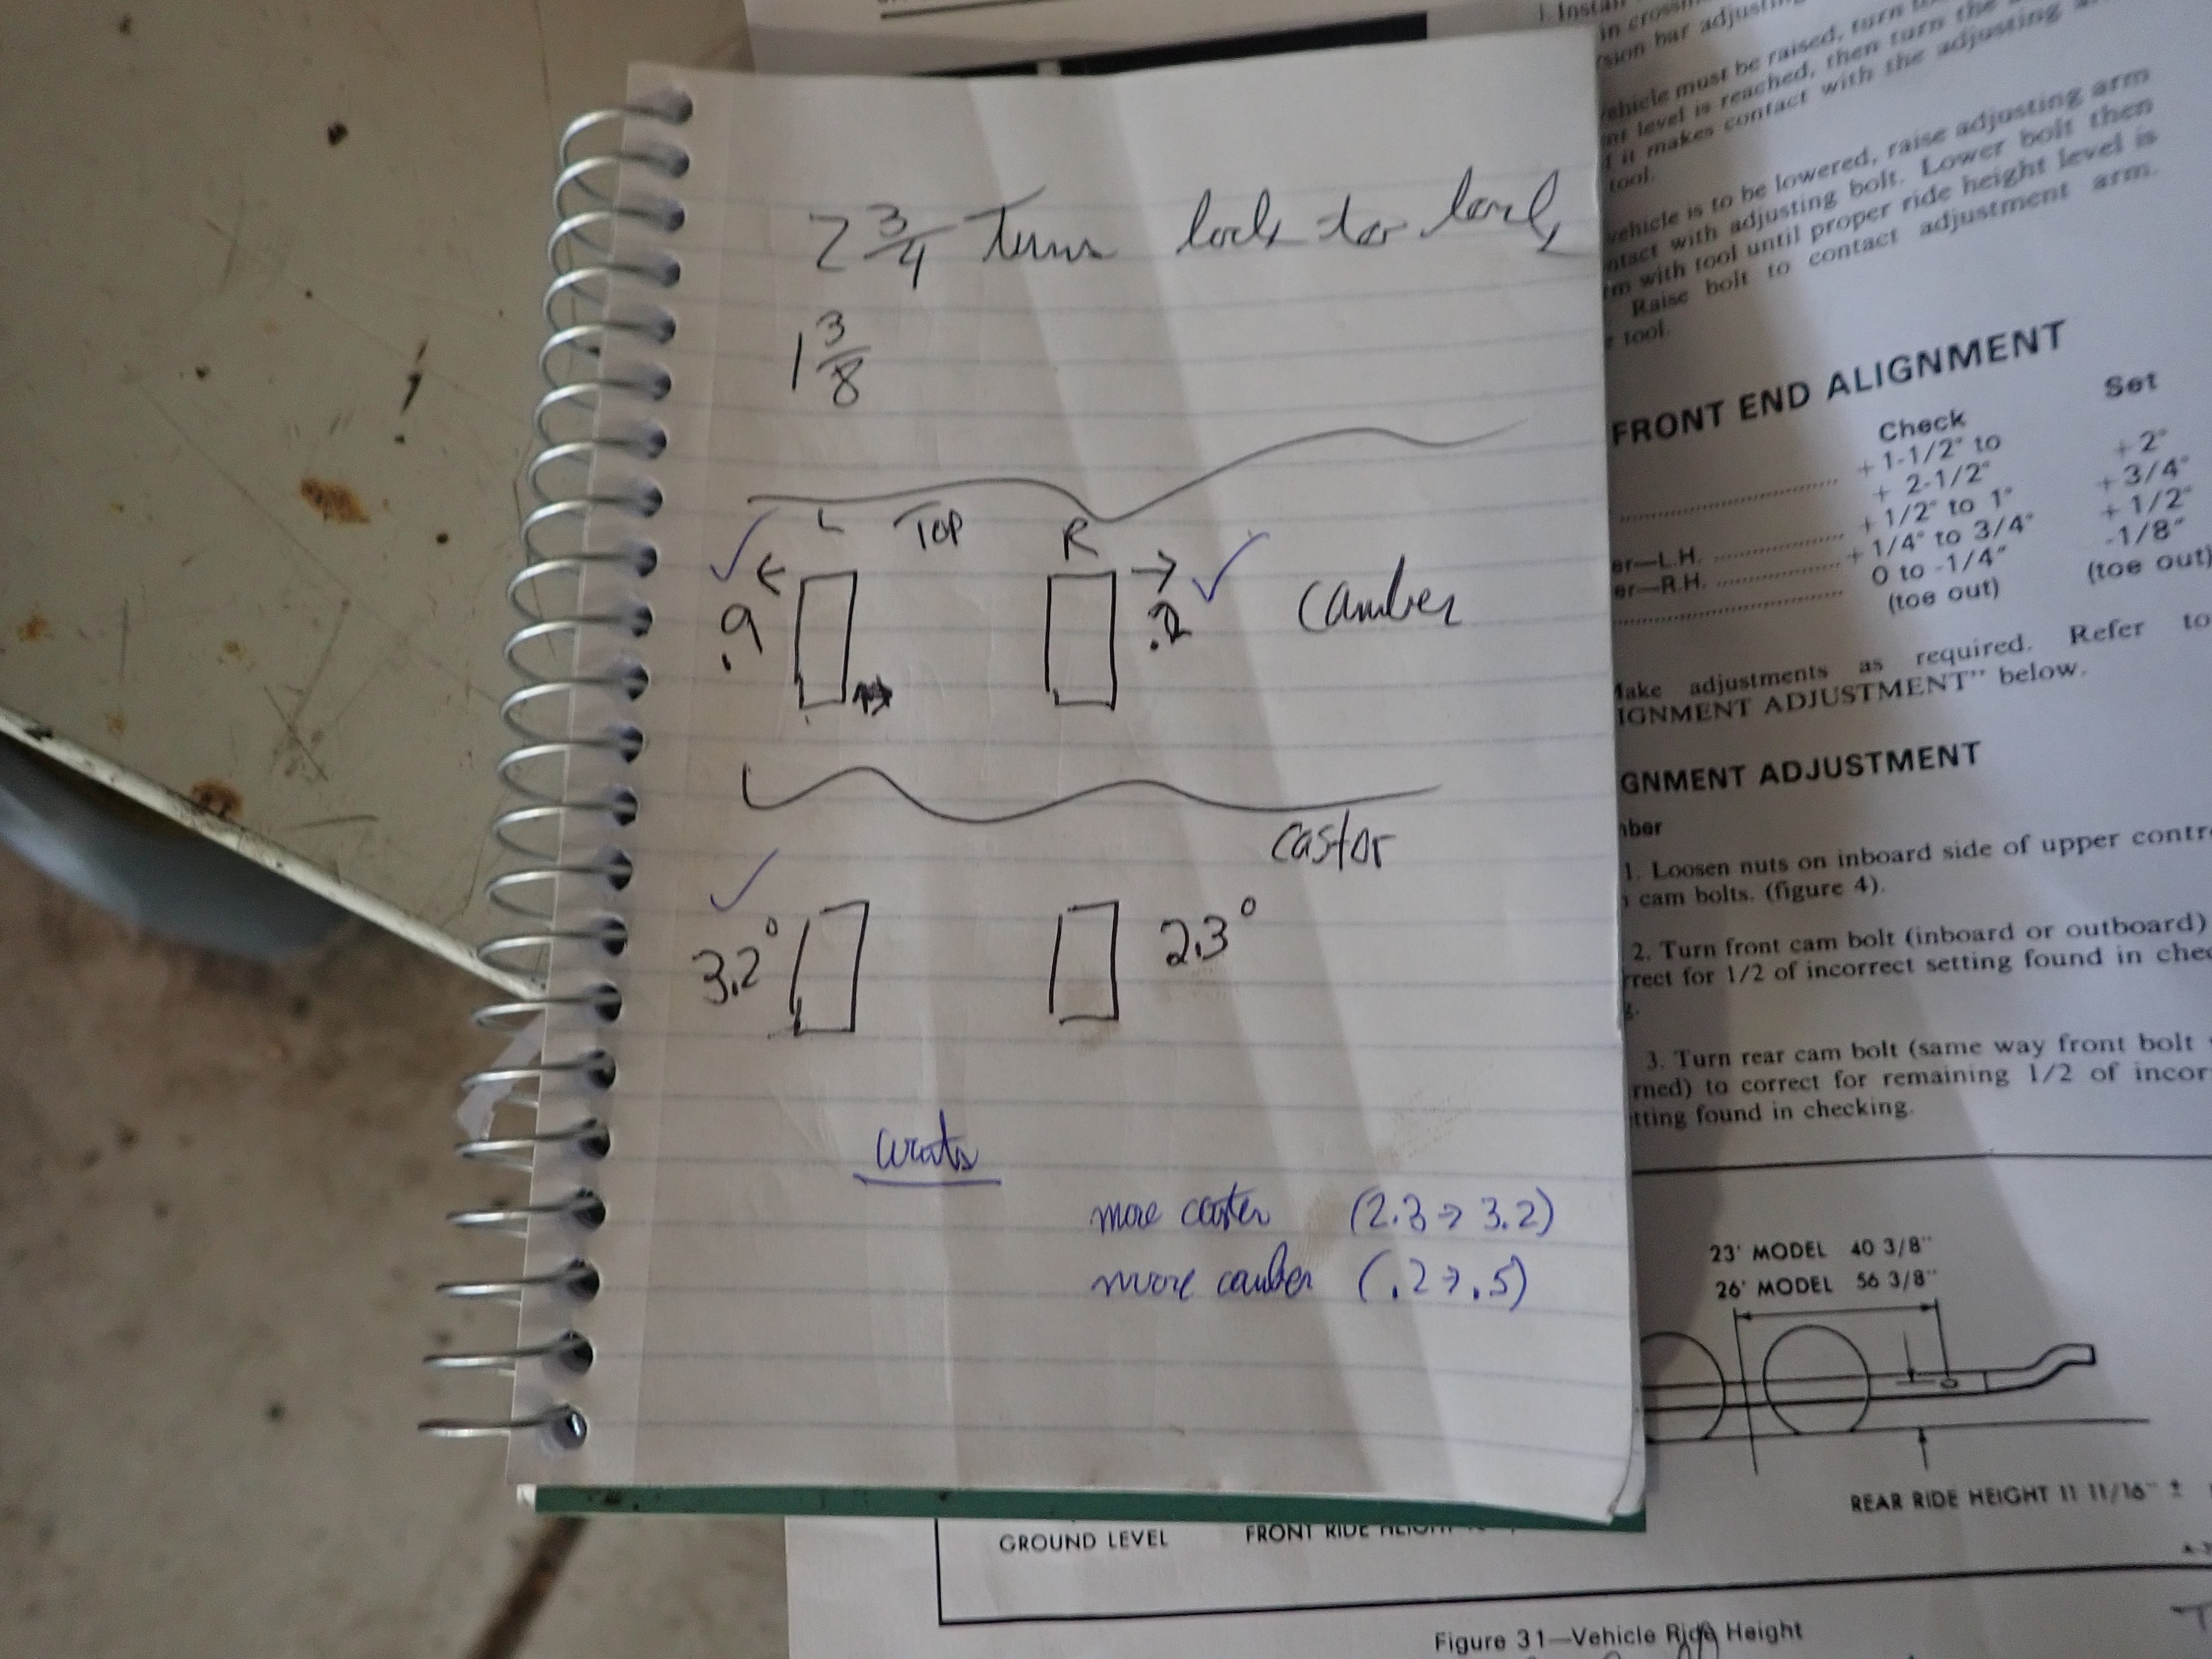 2 3/4 Turns lock to lock
1 3/8
L TOP R
.9 .2 Camber
castor
3.2° 2.3°
wants
more caster (2.3 → 3.2)
more camber (.2 → .5)
Install
in
sion bar
vehicle must be raised, turn
level is reached, then turn the
it makes contact with the adjusting
tool.
vehicle is to be lowered, raise adjusting arm
with adjusting bolt. Lower bolt then
with tool until proper ride height level is
Raise bolt to contact adjustment arm.
tool.
FRONT END ALIGNMENT
Check Set
+ 1-1/2° to + 2°
+ 2-1/2°
er—L.H. + 1/2° to 1° + 3/4°
er—R.H. + 1/4° to 3/4° + 1/2°
0 to -1/4" -1/8"
(toe out) (toe out)
adjustments as required. Refer to
IGNMENT ADJUSTMENT" below.
GNMENT ADJUSTMENT
ber
1. Loosen nuts on inboard side of upper contr
cam bolts. (figure 4).
2. Turn front cam bolt (inboard or outboard)
rrect for 1/2 of incorrect setting found in chec
g.
3. Turn rear cam bolt (same way front bolt
rned) to correct for remaining 1/2 of incor
tting found in checking.
23' MODEL 40 3/8"
26' MODEL 56 3/8"
REAR RIDE HEIGHT 11 11/16" ±
GROUND LEVEL FRONT RIDE HEIGHT
Figure 31—Vehicle Ride Height